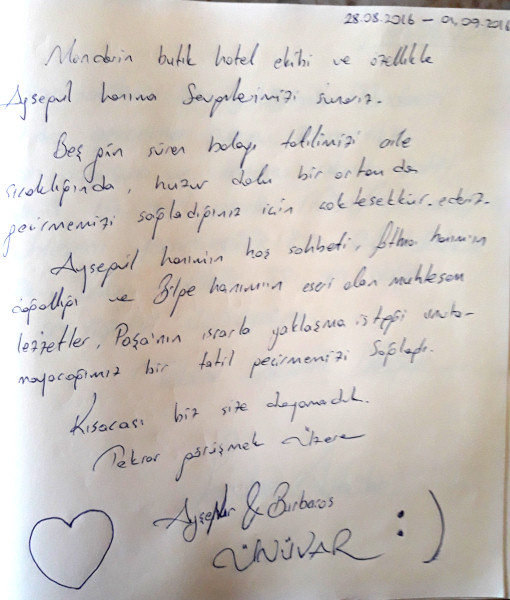 28.08.2016 – 01.09.2016
Mandarin butik hotel ekibi ve özellikle
Ayşegül hanıma Sevgilerimizi sunarız.
Beş gün süren balayı tatilimizi aile
sıcaklığında, huzur dolu bir ortamda
geçirmemizi sağladığınız için çok teşekkür ederiz.
Ayşegül hanımın hoş sohbeti, fatma hanımın
ve Bilge hanımın eseri olan muhteşem
lezzetler, Paşa'nın ısrarla yaklaşma isteği unuta-
mayacağımız bir tatil geçirmemizi Sağladı.
Kısacası biz size doyamadık.
Tekrar görüşmek Üzere
Ayşenur & Barbaros
ÜNÜVAR :)